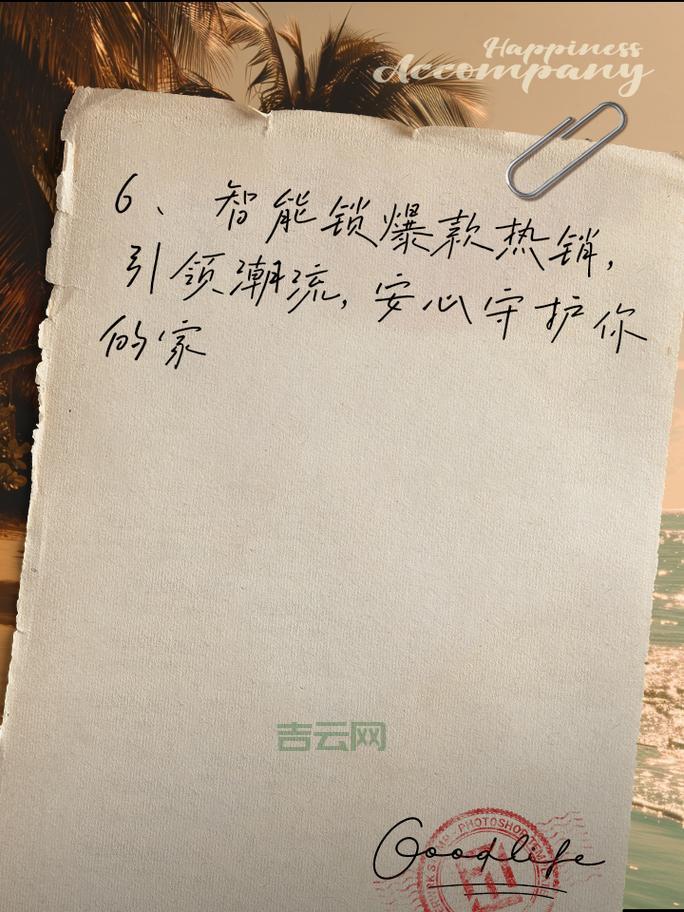 Happiness
Accompany
6、智能锁爆款热销,
引领潮流,安心守护你
的家
吉云网
PHOTOSHOP
Goodlife